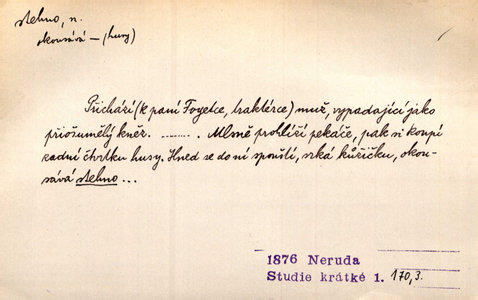 stehno, n.
okousává – (husy)
Přichází (k paní Foyetce, traktérce) muž, vypadající jako
přiošumělý kněz. ........ Mlsně prohlíží pekáče, pak si koupí
zadní čtvrtku husy. Hned se do ní spouští, srká kůžičku, okou-
sává stehno ...
1876 Neruda
Studie krátké 1. 170,3.